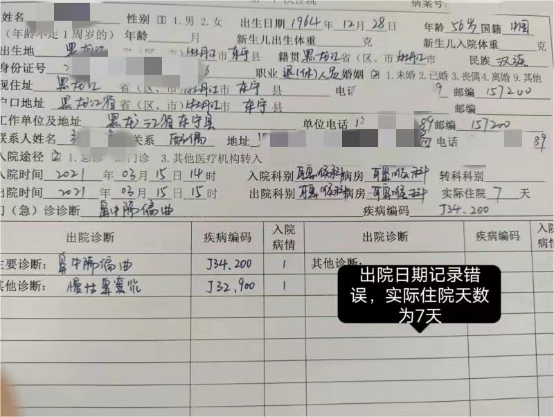 病案号:
姓名 性别 1.男 2.女 出生日期 1964 年 12 月 28 日 年龄 56岁 国籍 中国
(年龄不足1周岁的) 年龄 月 新生儿出生体重 克 新生儿入院体重 克
出生地 黑龙江 省(区、市) 牡丹江 市 东宁 县 籍贯 黑龙江 省(区、市) 牡丹江 市 民族 汉族
身份证号 职业 退(休)人员 婚姻 1.未婚 2.已婚 3.丧偶 4.离婚 9.其他
现住址 黑龙江 省(区、市) 牡丹江 市 东宁 县 电话 9 邮编 157200
户口地址 黑龙江省 省(区、市) 牡丹江 市 东宁 县 邮编 157200
工作单位及地址 黑龙江省东宁县 单位电话 89 邮编 157200
联系人姓名 关系 地址 电话 89
入院途径 门诊 3.其他医疗机构转入
入院时间 2021 年 03 月 15 日 14 时 入院科别 耳鼻喉科 病房 耳鼻喉科 转科科别
出院时间 2021 年 03 月 15 日 15 时 出院科别 耳鼻喉科 病房 耳鼻喉科 实际住院 7 天
门(急)诊诊断 鼻中隔偏曲 疾病编码 J34.200
出院诊断 疾病编码 入院病情 出院诊断 疾病编码 入院病情
主要诊断: 鼻中隔偏曲 J34.200 1 其他诊断:
其他诊断: 慢性鼻窦炎 J32.900 1
出院日期记录错
误,实际住院天数
为7天